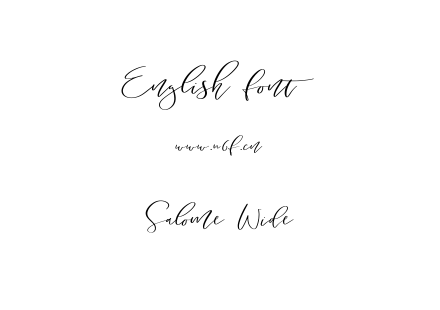 English font
www.n6f.cn
Salome Wide